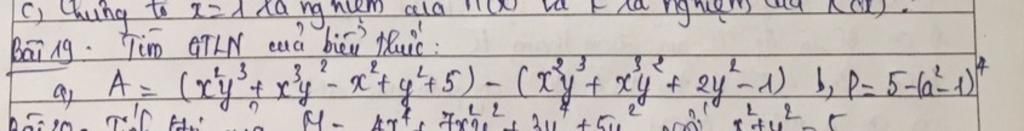 c) Chứng tỏ x = 1 là nghiệm của là nghiệm của
Bài 19. Tìm GTLN của biểu thức:
a, A = (x²y³ + x³y² - x² + y² + 5) - (x²y³ + x³y² + 2y² - 1) b, P = 5 - (a² - 1)⁴
x² + y² = 5